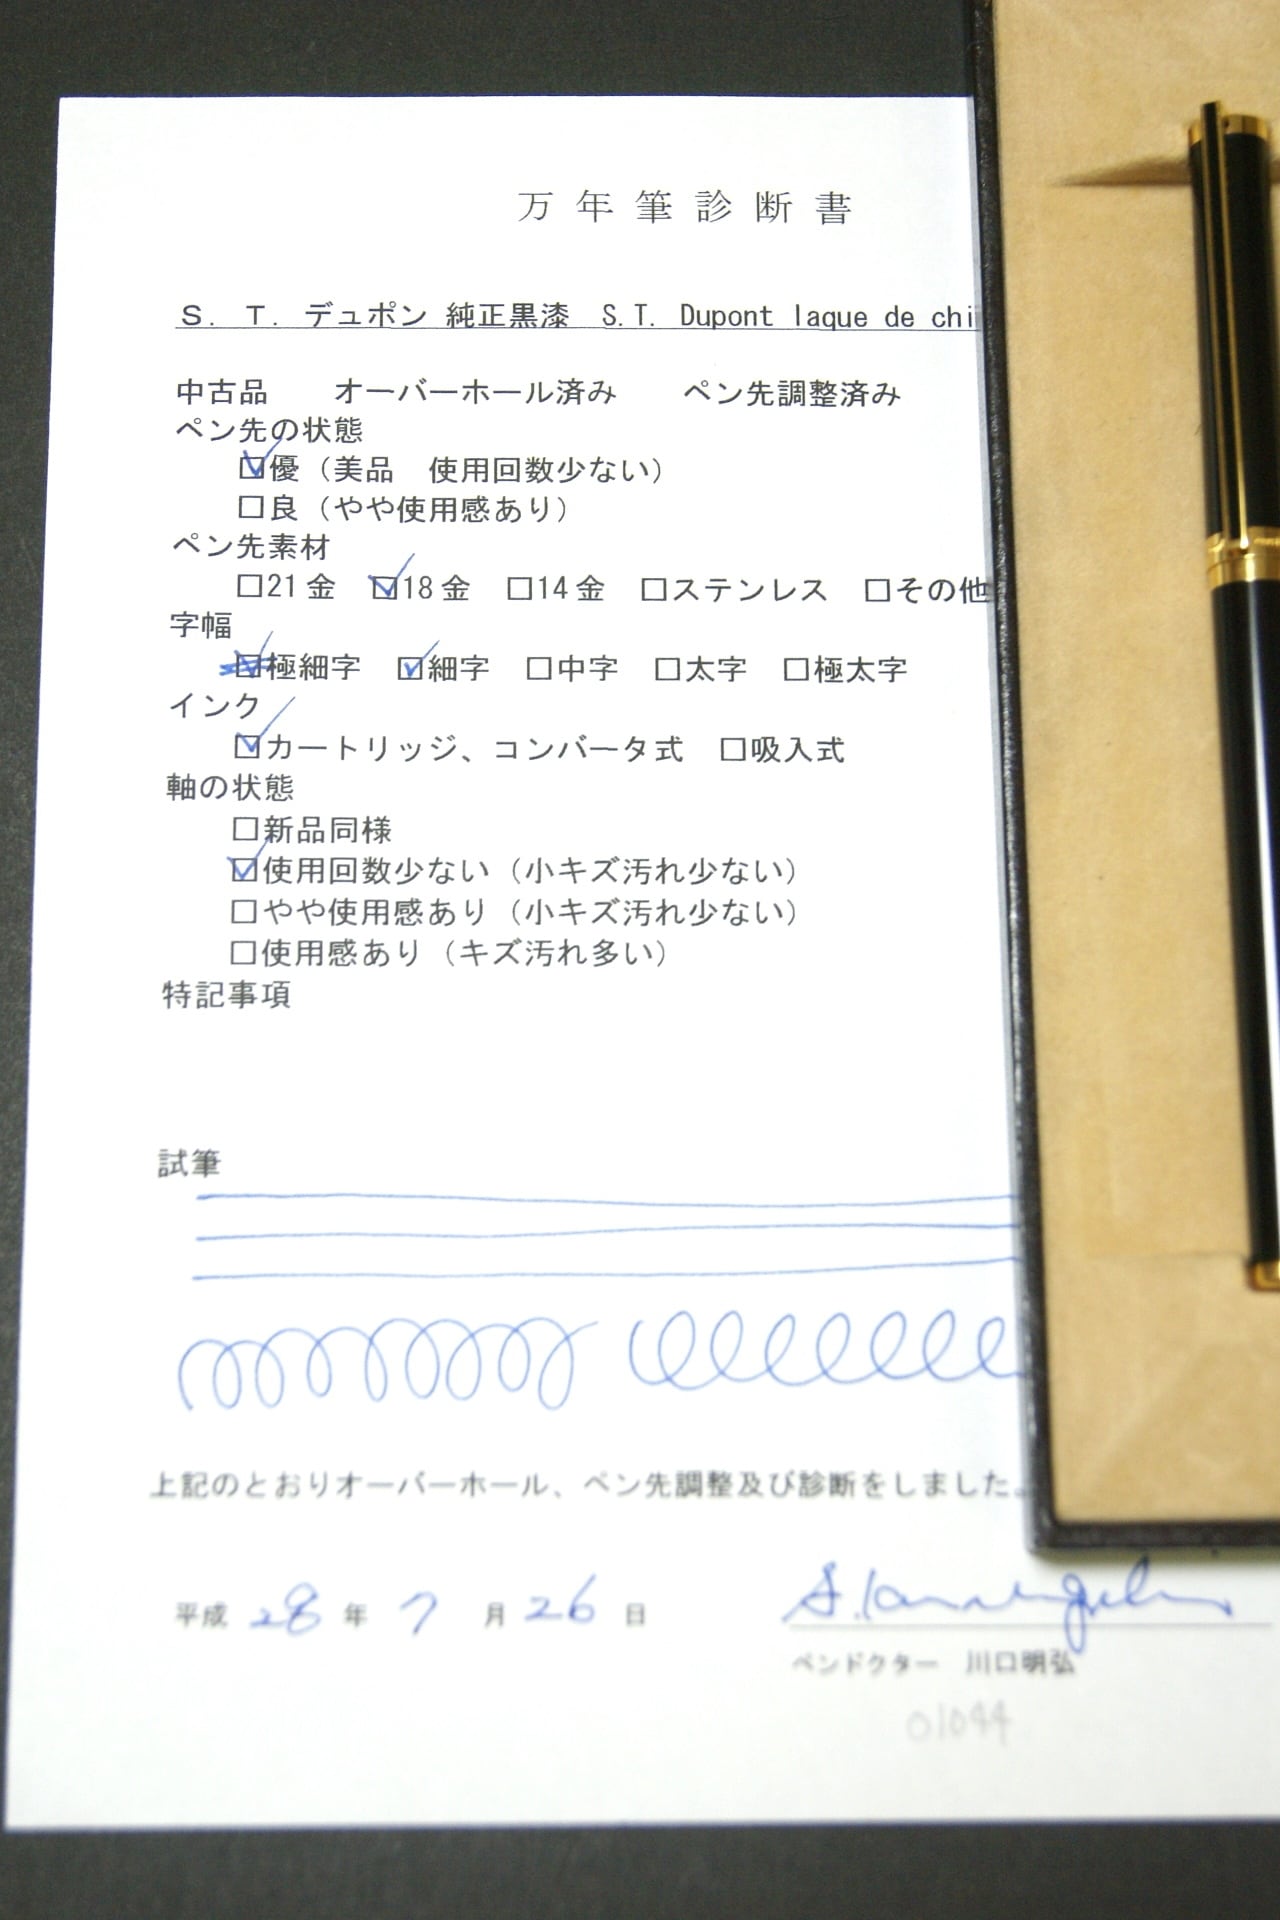 万年筆診断書
S. T. デュポン 純正黒漆 S.T. Dupont laque de chi
中古品 オーバーホール済み ペン先調整済み
ペン先の状態
☑優（美品 使用回数少ない）
□良（やや使用感あり）
ペン先素材
□21金 ☑18金 □14金 □ステンレス □その他
字幅
☑極細字 ☑細字 □中字 □太字 □極太字
インク
☑カートリッジ、コンバータ式 □吸入式
軸の状態
□新品同様
☑使用回数少ない（小キズ汚れ少ない）
□やや使用感あり（小キズ汚れ少ない）
□使用感あり（キズ汚れ多い）
特記事項
試筆
上記のとおりオーバーホール、ペン先調整及び診断をしました。
平成 28 年 7 月 26 日
ペンドクター 川口明弘
01044